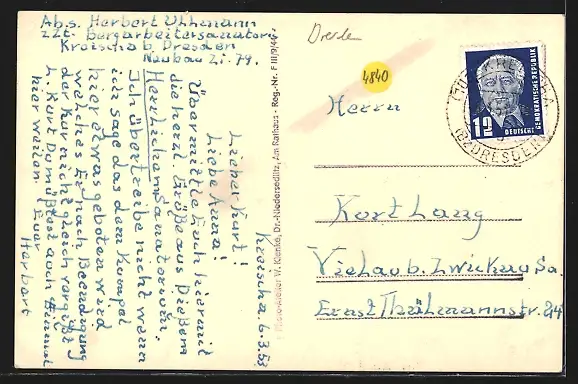 Abs. Herbert Uhlmann
z.Zt. Bergarbeitersanatorium
Kreischa b. Dresden
Neubau Zi. 79.
Kreischa 6.3.53
Lieber Kurt!
Liebe Anna!
Übermittle Euch hiermit
die herzl. Grüße aus Diesem
Herrlichem Sanatorium.
Ich übertreibe nicht wenn
ich sage das dem Kumpel
hier etwas geboten wird
welches Er nach Beendigung
der Kur nicht gleich vergißt
L. Kurt Du müßtest auch Einmal
hier weilen. Euer
Herbert
Photo-Atelier W. Dr.-Niedersedlitz, Am Rathaus - Reg.-Nr. F III/9/44
Dresden
4840
12
DEUTSCHE
DEMOKRATISCHE REPUBLIK
KREISCHA
(BZ DRESDEN)
Herrn
Kurt Lang
Vielau b. Zwickau Sa.
Ernst Thälmannstr. 24